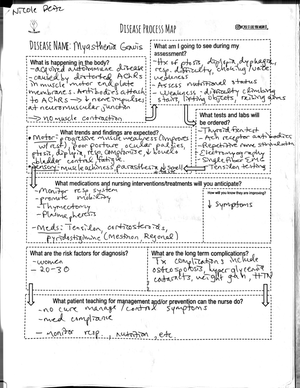 Nicole Perz
DISEASE PROCESS MAP
DISEASE NAME: Myasthenia Gravis
What is happening in the body?
- acquired autoimmune disease
- caused by distorted AChRs
in muscle motor end plate
membranes. Antibodies attach
to AChRs → ↓ nerve impulses
at neuromuscular junction
→ no muscle contraction
What am I going to see during my
assessment?
- Hx of ptosis, diplopia, dysphagia,
resp. difficulty, choking, muscle
weakness
- Assess nutritional status
- Weakness - difficulty climbing
stairs, lifting objects, raising arms
What tests and labs will
be ordered?
- Thyroid function
- Ach receptor antibodies
- Repetitive nerve stimulation
- Electromyography
- Single Fiber EMG
- Tensilon testing
What trends and findings are expected?
Motor: - progressive muscle weakness (improves
w/ rest), poor posture, ocular palsies,
ptosis, diplopia, resp. compromise, ↓ bowel &
bladder control, fatigue
Sensory: - muscle achiness, paresthesia, ↓ smell &
taste
What medications and nursing interventions/treatments will you anticipate?
- Monitor resp system
- promote mobility
- Thymectomy
- Plasmapheresis
- Meds: Tensilon, corticosteroids,
Pyridostigmine (Mestinon, Regonol)
How will we know if your patient is improving?
↓ Symptoms
What are the risk factors for diagnosis?
- women
- 20-30
What are the long term complications?
Tx complications include
osteoporosis, hyperglycemia
cataracts, weight gain, HTN
What patient teaching for management and/or prevention can the nurse do?
- no cure manage/control symptoms
- med compliance
- monitor resp., nutrition, etc